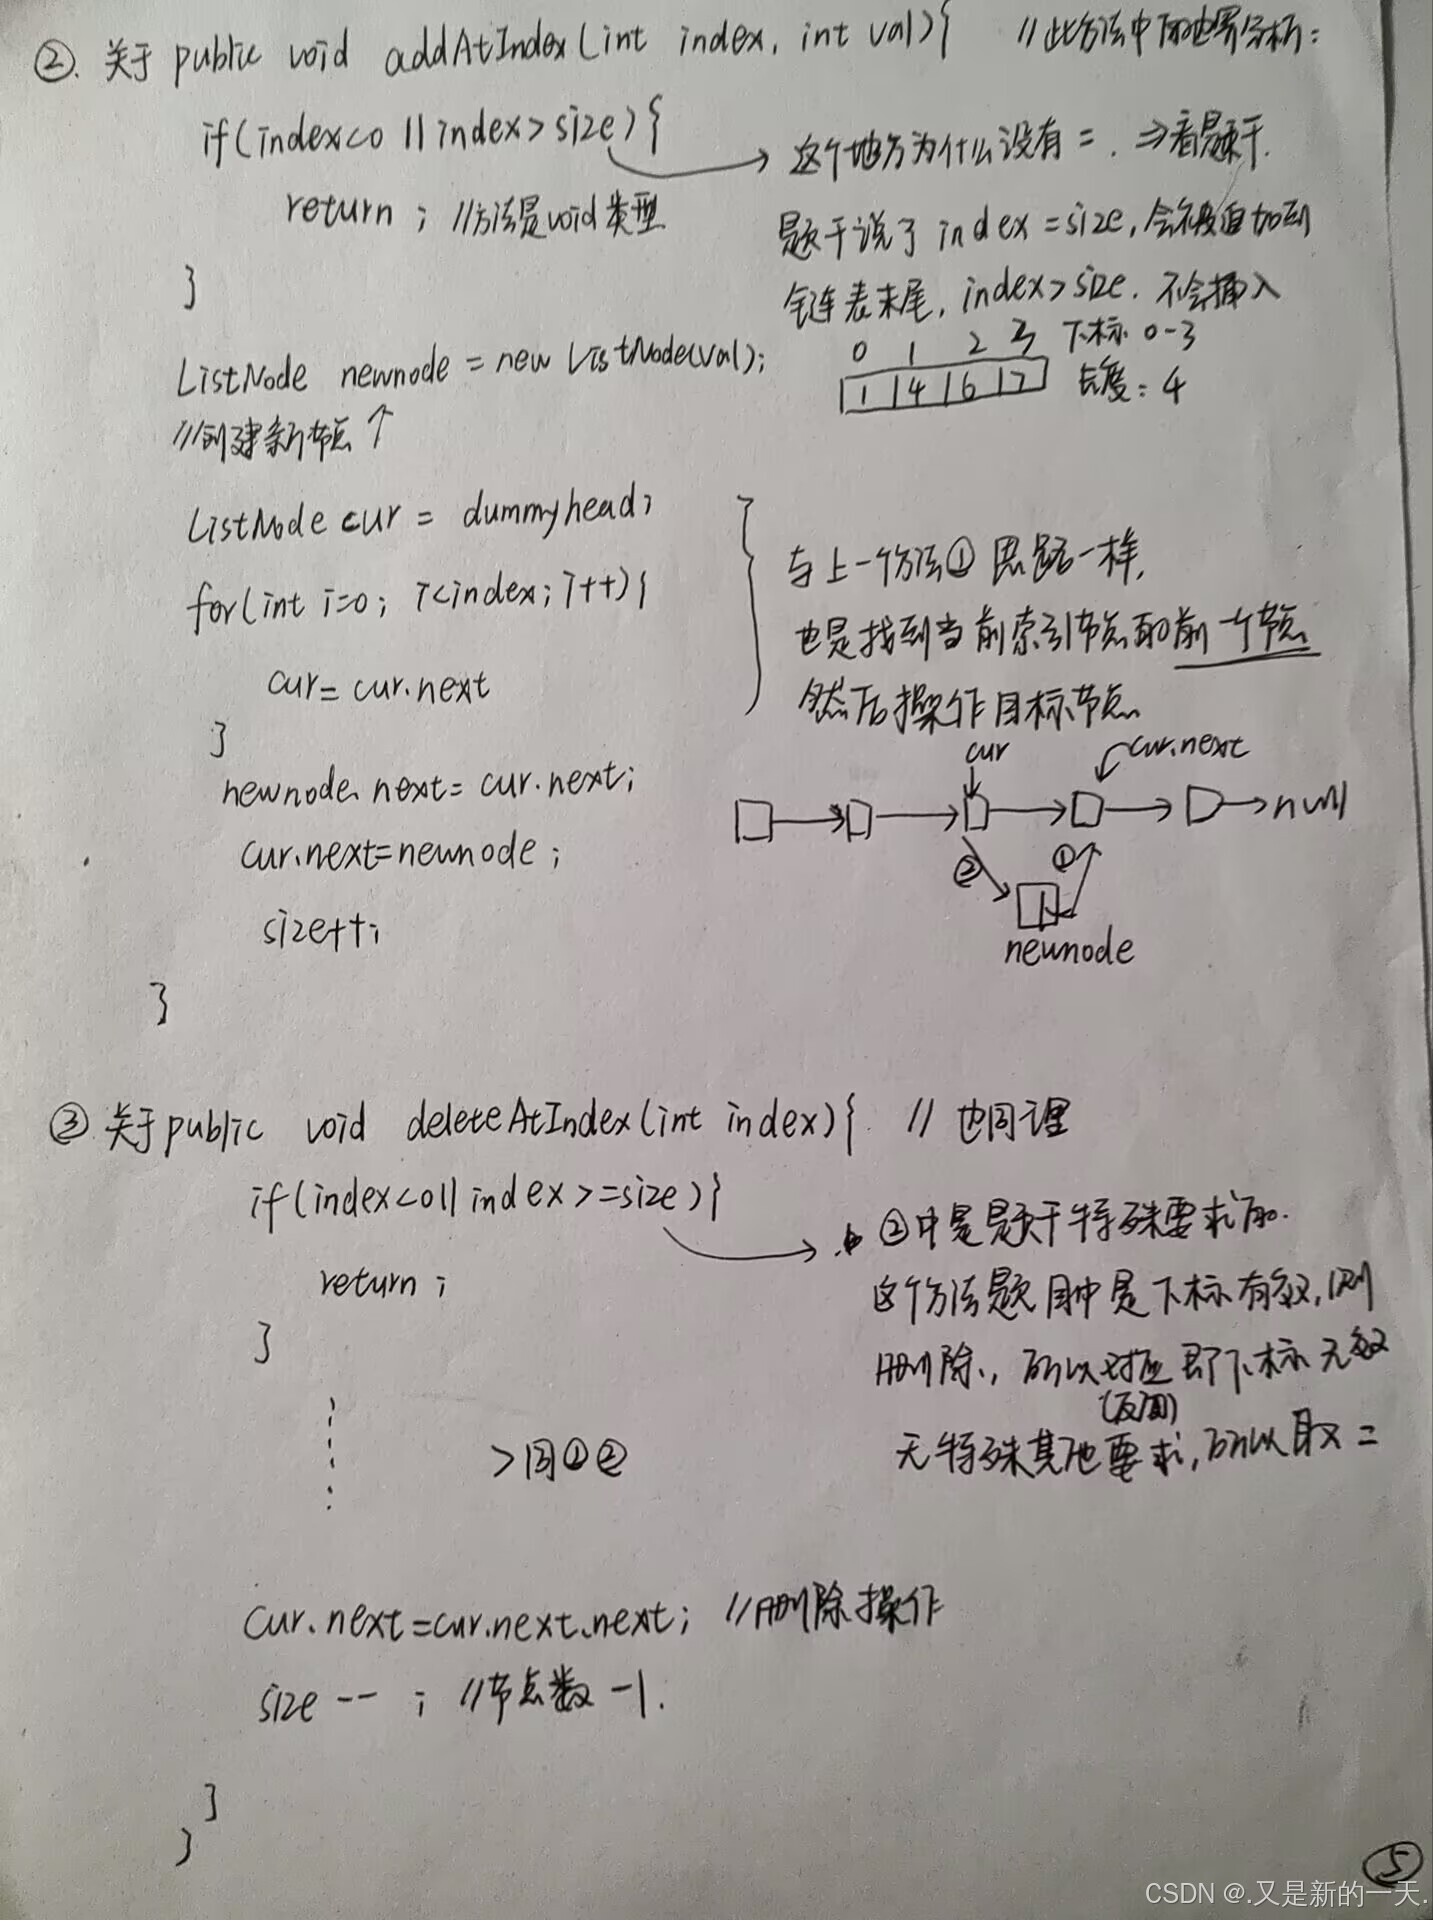 ②. 关于 public void addAtIndex(int index, int val){ //此方法中的边界分析:
if(index<0 || index>size){
这个地方为什么没有=. ⇒看题干.
return ; //方法是void类型
题干说了 index=size, 会被追加到
}
链表末尾, index>size. 不会插入
ListNode newnode = new ListNode(val);
0 1 2 3 下标 0-3
1 4 6 7 长度: 4
//创建新节点↑
ListNode cur = dummyhead;
for(int i=0; i<index; i++){
cur= cur.next
}
与上一个方法① 思路一样,
也是找到当前索引节点的前一个节点
然后操作目标节点
newnode.next= cur.next;
cur.next=newnode;
size++;
}
cur
cur.next
null
② ①
newnode
③ 关于public void deleteAtIndex(int index){ // 也同理
if(index<0|| index>=size){
②中是题干特殊要求的.
return;
这个方法题目中是下标有效, 则
}
删除, 所以对应即下标无效
(反面)
无特殊其他要求, 所以取=
>同①②
cur.next=cur.next.next; //删除操作
size-- ; //节点数-1.
}
}
⑤
CSDN @.又是新的一天.